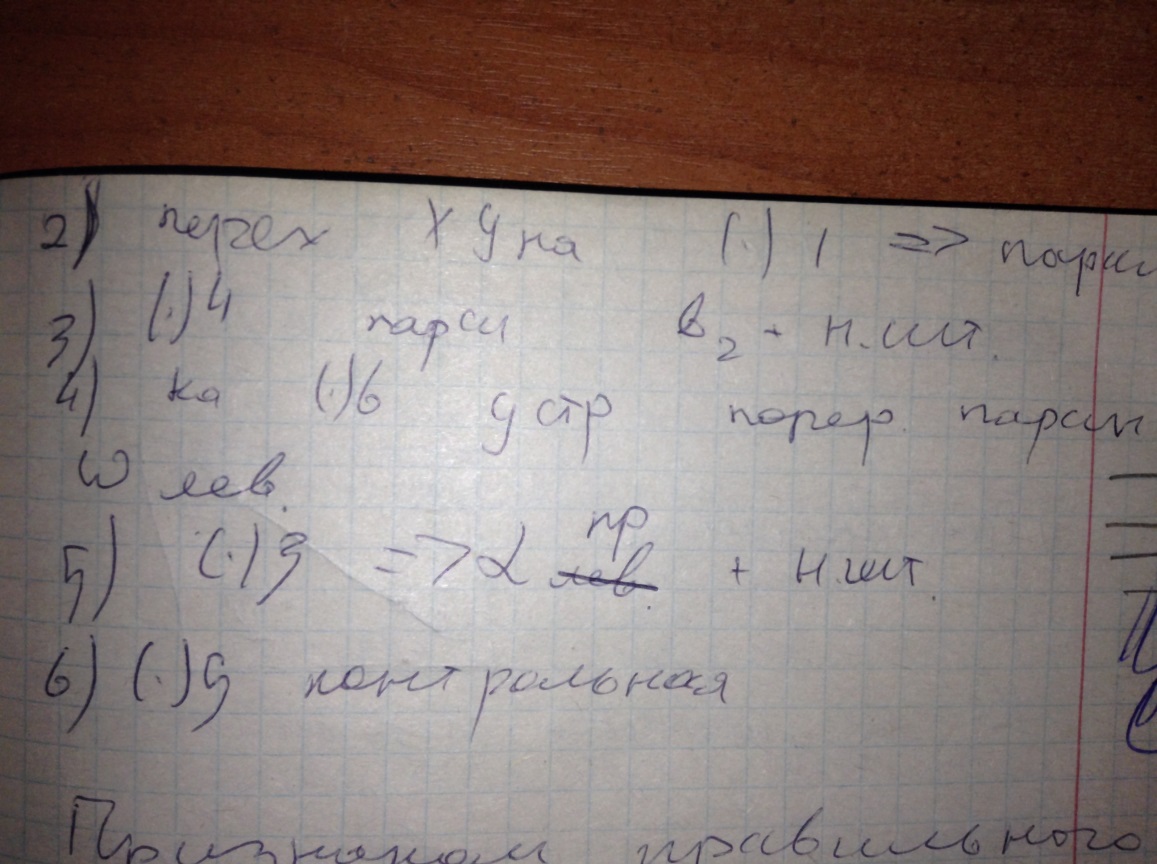 2) перех Х У на (.) 1 => парси
3) (.) 4 парси в2 + н.шт.
4) на (.) 6 устр попер. парси
ω лев.
5) (.) 3 => α пр лев. + н.шт.
6) (.) 5 контрольная
Признаком правильного